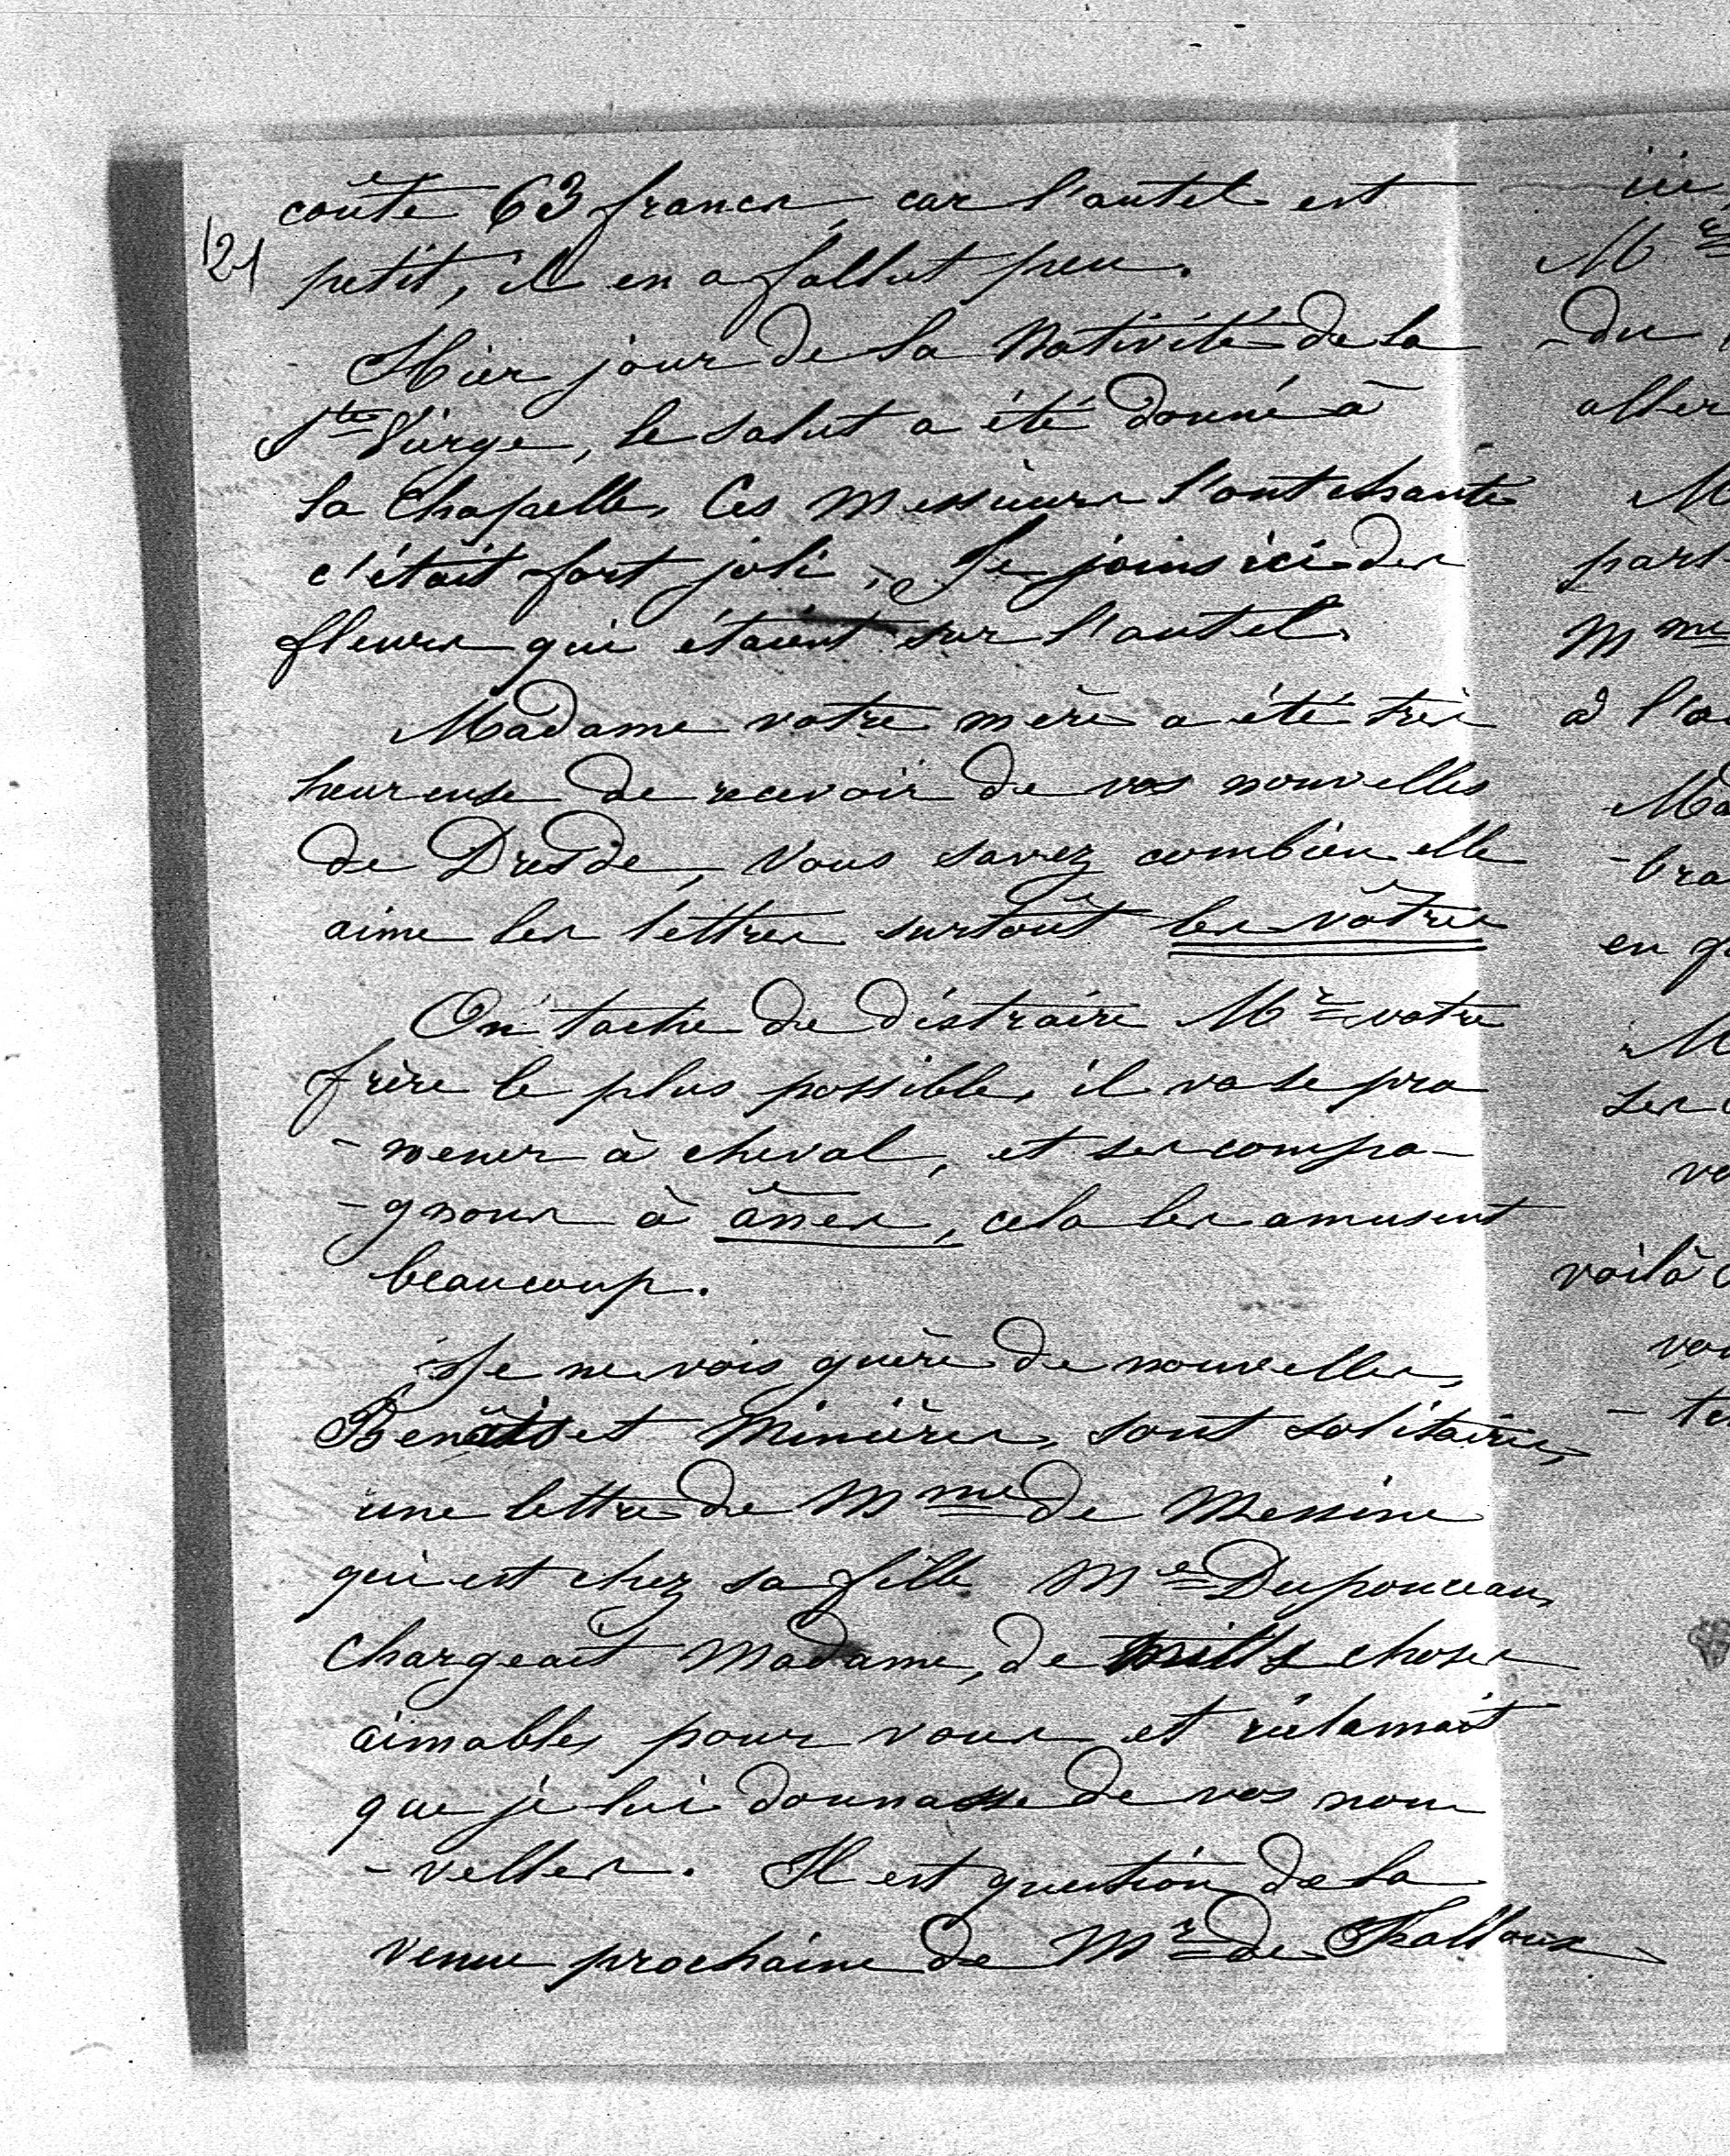 coûte 63 francs, car l'autel est
121
petit, il en a fallut peu.
Hier jour de la Nativité de la
Ste Vierge, le salut a été donné à
la Chapelle, Ces Messieurs l'ont chanté
c'était fort joli, Je joins ici des
fleurs qui étaient sur l'autel.
Madame votre mère a été très
heureuse de recevoir de vos nouvelles
de Dresde, Vous savez combien elle
aime les lettres surtout les vôtres
On tache de distraire Mr votre
frère le plus possible, il va se pro
-mener à cheval, et ses compa-
-gnons à ânes, cela les amusent
beaucoup.
Je ne vois guère de nouvelles,
et Minières, sont solitaires,
une lettre de Mme de Messine
qui est chez sa fille Me Duponceau,
chargeait Madame, de mille choses
aimables pour vous et réclamait
que je lui donnasse de vos nou
-velles. Il est question de la
venue prochaine de Mr de Falloux
ici
Mr
-du
aller
M
part
Mme
à l'a
Ma
-bra
en q
M
ses
vo
voilà
vou
- te